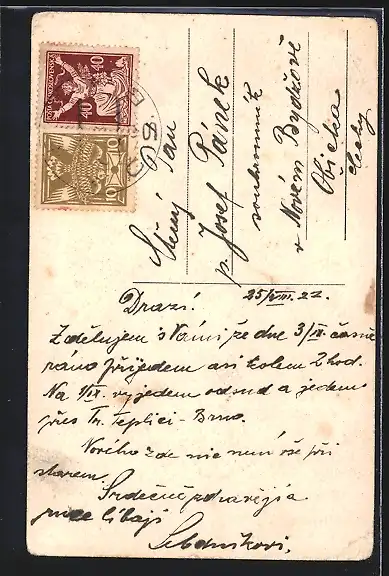 POŠTA ČESKOSLOVENSKÁ
40 40
10 10
Ctěný Pan
p. Josef Pánek
soukromník
v Novém Bydžově
Čechy
Drazí! 25/VIII. 22.
Zdělujem s Vámi že dne 3/IX. časně
ráno přijedem asi kolem 2 hod.
Na 1/IX. vyjedem odsud a jedem
přes Tr. Teplici - Brno.
Nového zde nic není vše při
starem.
Srdečně pozdravují a
ruce líbají